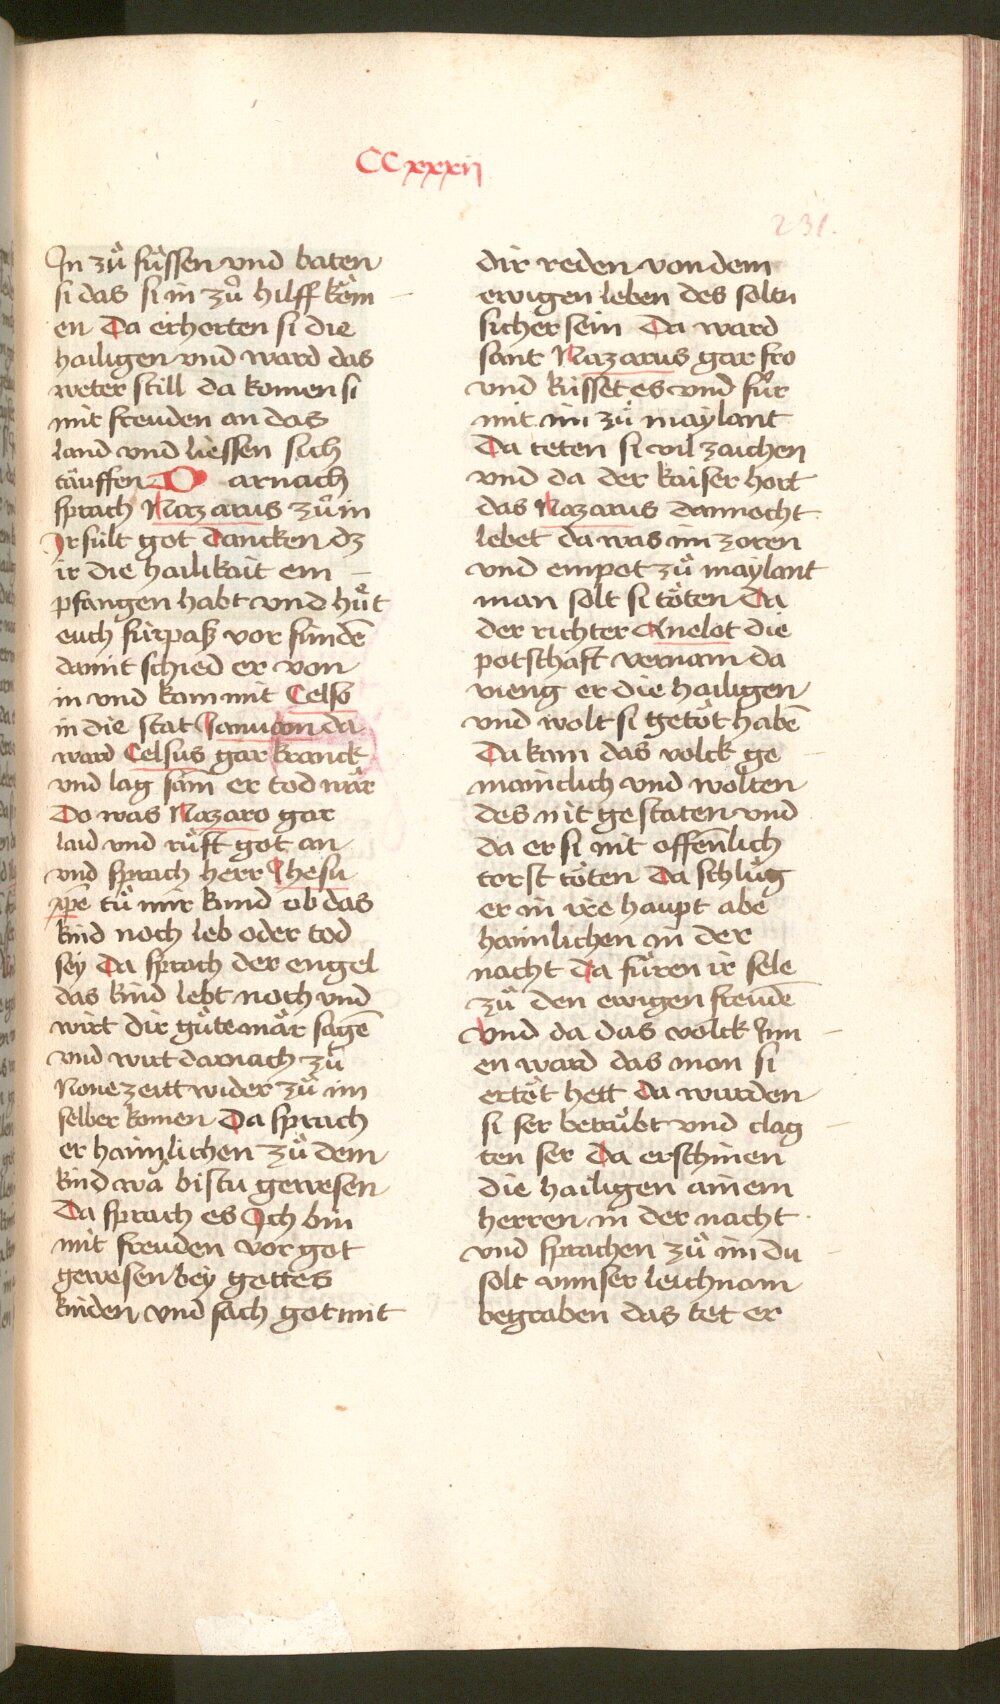 CCxxxij
231.
In zuͦ fuͤssen vnd baten
si das si in zuͦ hilff koͤm
en Da erhorten si die
hailigen vnd ward das
weter still da komen si
mit freuden an das
land vnd liessen sich
täuffen Darnach
sprach Nazarus zuͦ in
Ir sült got Dancken dz
ir die hailikait em
pfangen habt vnd huͤt
euch fürpaß vor sündē
damit schied er von
in vnd kam mit Celso
in die stat Januͦon da
ward Celsus gar kranck
vnd lag sam er tod waͤr
Do was Nazaro gar
laid vnd ruͦft got an
vnd sprach herr Jhesu
xp̄e tuͦ mir kund ob das
kind noch leb oder tod
sey Da sprach der engel
das kind lebt noch vnd
wirt dir guͦte maͤr sagē
vnd wirt darnach zuͦ
None zeitt wider zuͦ im
selber komen Da sprach
er haimlichen zuͦ dem
kind wa bistu gewesen
Da sprach es Ich bin
mit freuden vor got
gewesen bey gottes
kinden vnd sach got mit
dir reden von dem
ewigen leben des soltu
sicher sein Da ward
sant Nazarus gar fro
vnd kusset es vnd fuͦr
mit im zuͦ maylant
Da teten si vil zaichen
vnd da der kaiser hort
das Nazarus dannocht
lebet da was im zoren
vnd empot zuͦ maylant
man solt si töten Da
der richter Anelot die
potschaft vernam da
vieng er die hailigen
vnd wolt si getöt habē
Da kam das volck ge
mainclich vnd wolten
des nit gestaten vnd
da er si nit offenlich
torst töten Da schluͦg
er in ire haupt abe
haimlichen in der
nacht da fuͦren ir sele
zuͦ den ewigen freudē
Vnd da das volck inn
en ward das man si
ertöt hett Da wurden
si ser betruͤbt vnd clag
ten ser Da erschinen
die hailigen ainem
herren in der nacht
vnd sprachen zuͦ im du
solt vnnser leichnam
begraben das tet er